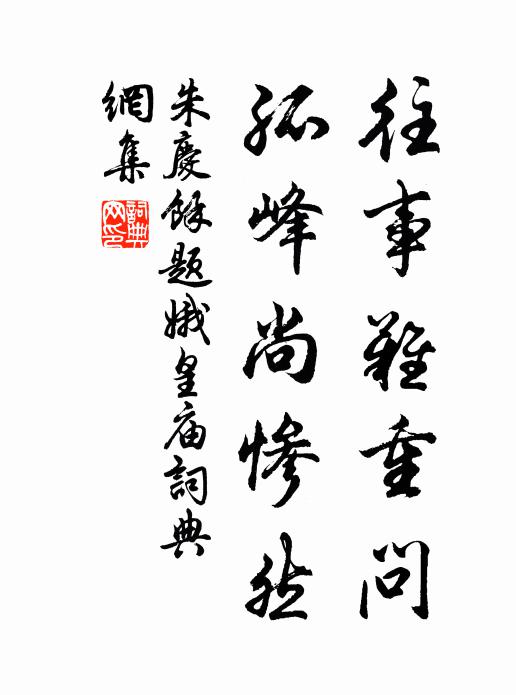 往事難重问
孤峰尚慘然
朱慶餘題娥皇庙詞典
網集
詞典网印